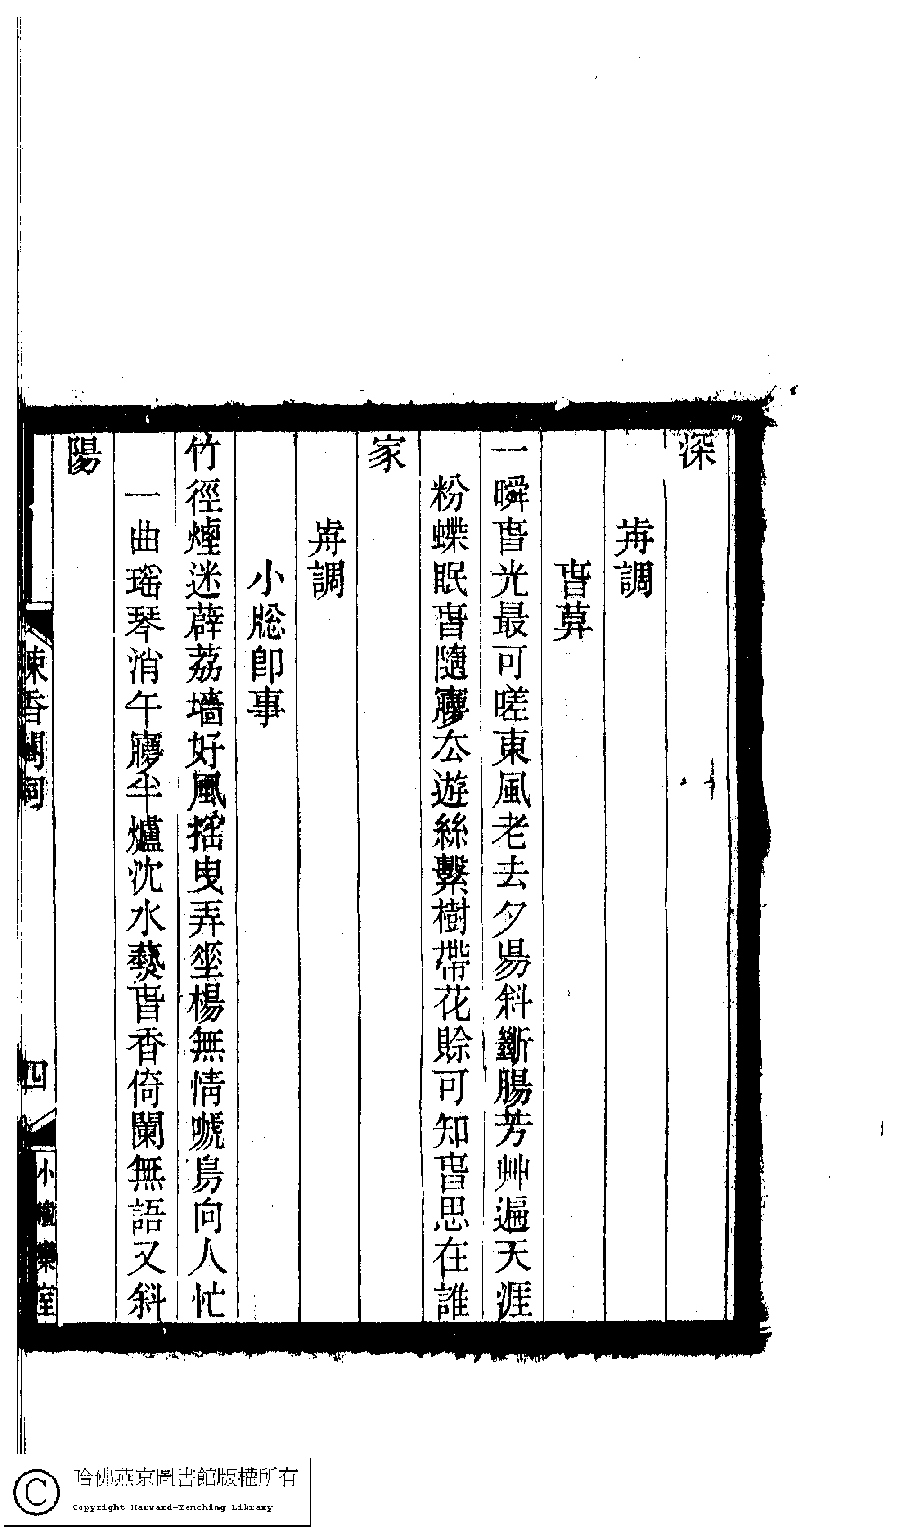 深
歬調
旾莫
一瞬旾光最可嗟東風老去夕昜斜斷腸芳艸遍天涯
粉蝶眠旾隨㝱厺遊絲繫樹帶花賒可知旾思在誰
家
歬調
小牕卽事
竹徑煙迷薜荔墻好風搖曳弄埀楊無情嗁鳥向人忙
一曲瑤琴消午㝱半爐沈水爇旾香倚闌無語又斜
陽
疎香閣詞
四
小檀欒室
哈佛燕京圖書館版權所有
Copyright Harvard-Yenching Library